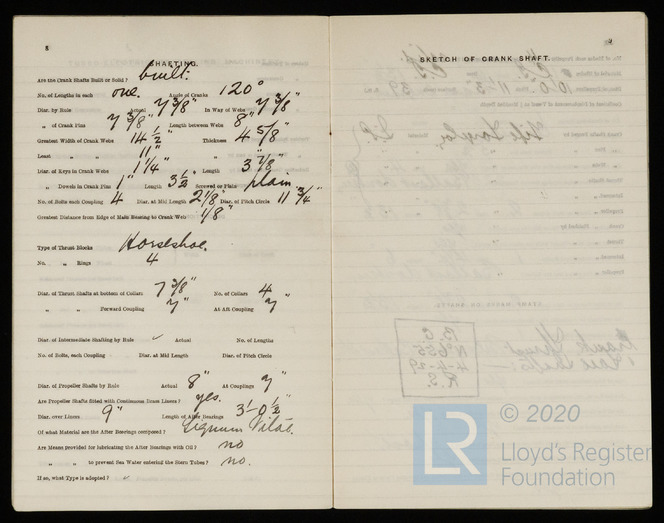 8
SHAFTING.
Are the Crank Shafts Built or Solid? built.
No. of Lengths in each one. Angle of Cranks 120°
Diar. by Rule Actual 7 3/8" In Way of Webs 7 3/8"
„ of Crank Pins 7 3/8" Length between Webs 8"
Greatest Width of Crank Webs 14 1/2" Thickness 4 5/8"
Least „ „ 11" „ 3 7/8"
Diar. of Keys in Crank Webs 1 1/4" Length
„ Dowels in Crank Pins 1" Length 3 1/2" Screwed or Plain plain
No. of Bolts each Coupling 4 Diar. at Mid Length 2 1/8" Diar. of Pitch Circle 11 3/4"
Greatest Distance from Edge of Main Bearing to Crank Web 1/8"
Type of Thrust Blocks Horseshoe.
No. „ Rings 4
Diar. of Thrust Shafts at bottom of Collars 7 3/8" No. of Collars 4
„ „ Forward Coupling 7" At Aft Coupling 7"
Diar. of Intermediate Shafting by Rule Actual No. of Lengths
No. of Bolts, each Coupling Diar. at Mid Length Diar. of Pitch Circle
Diar. of Propeller Shafts by Rule Actual 8" At Couplings 7"
Are Propeller Shafts fitted with Continuous Brass Liners? yes.
Diar. over Liners 9" Length of After Bearings 3'-0 1/2"
Of what Material are the After Bearings composed? Lignum Vitae.
Are Means provided for lubricating the After Bearings with Oil? no
„ „ to prevent Sea Water entering the Stern Tubes? no.
If so, what Type is adopted?
SKETCH OF CRANK SHAFT.
© 2020
LR
Lloyd's Register
Foundation